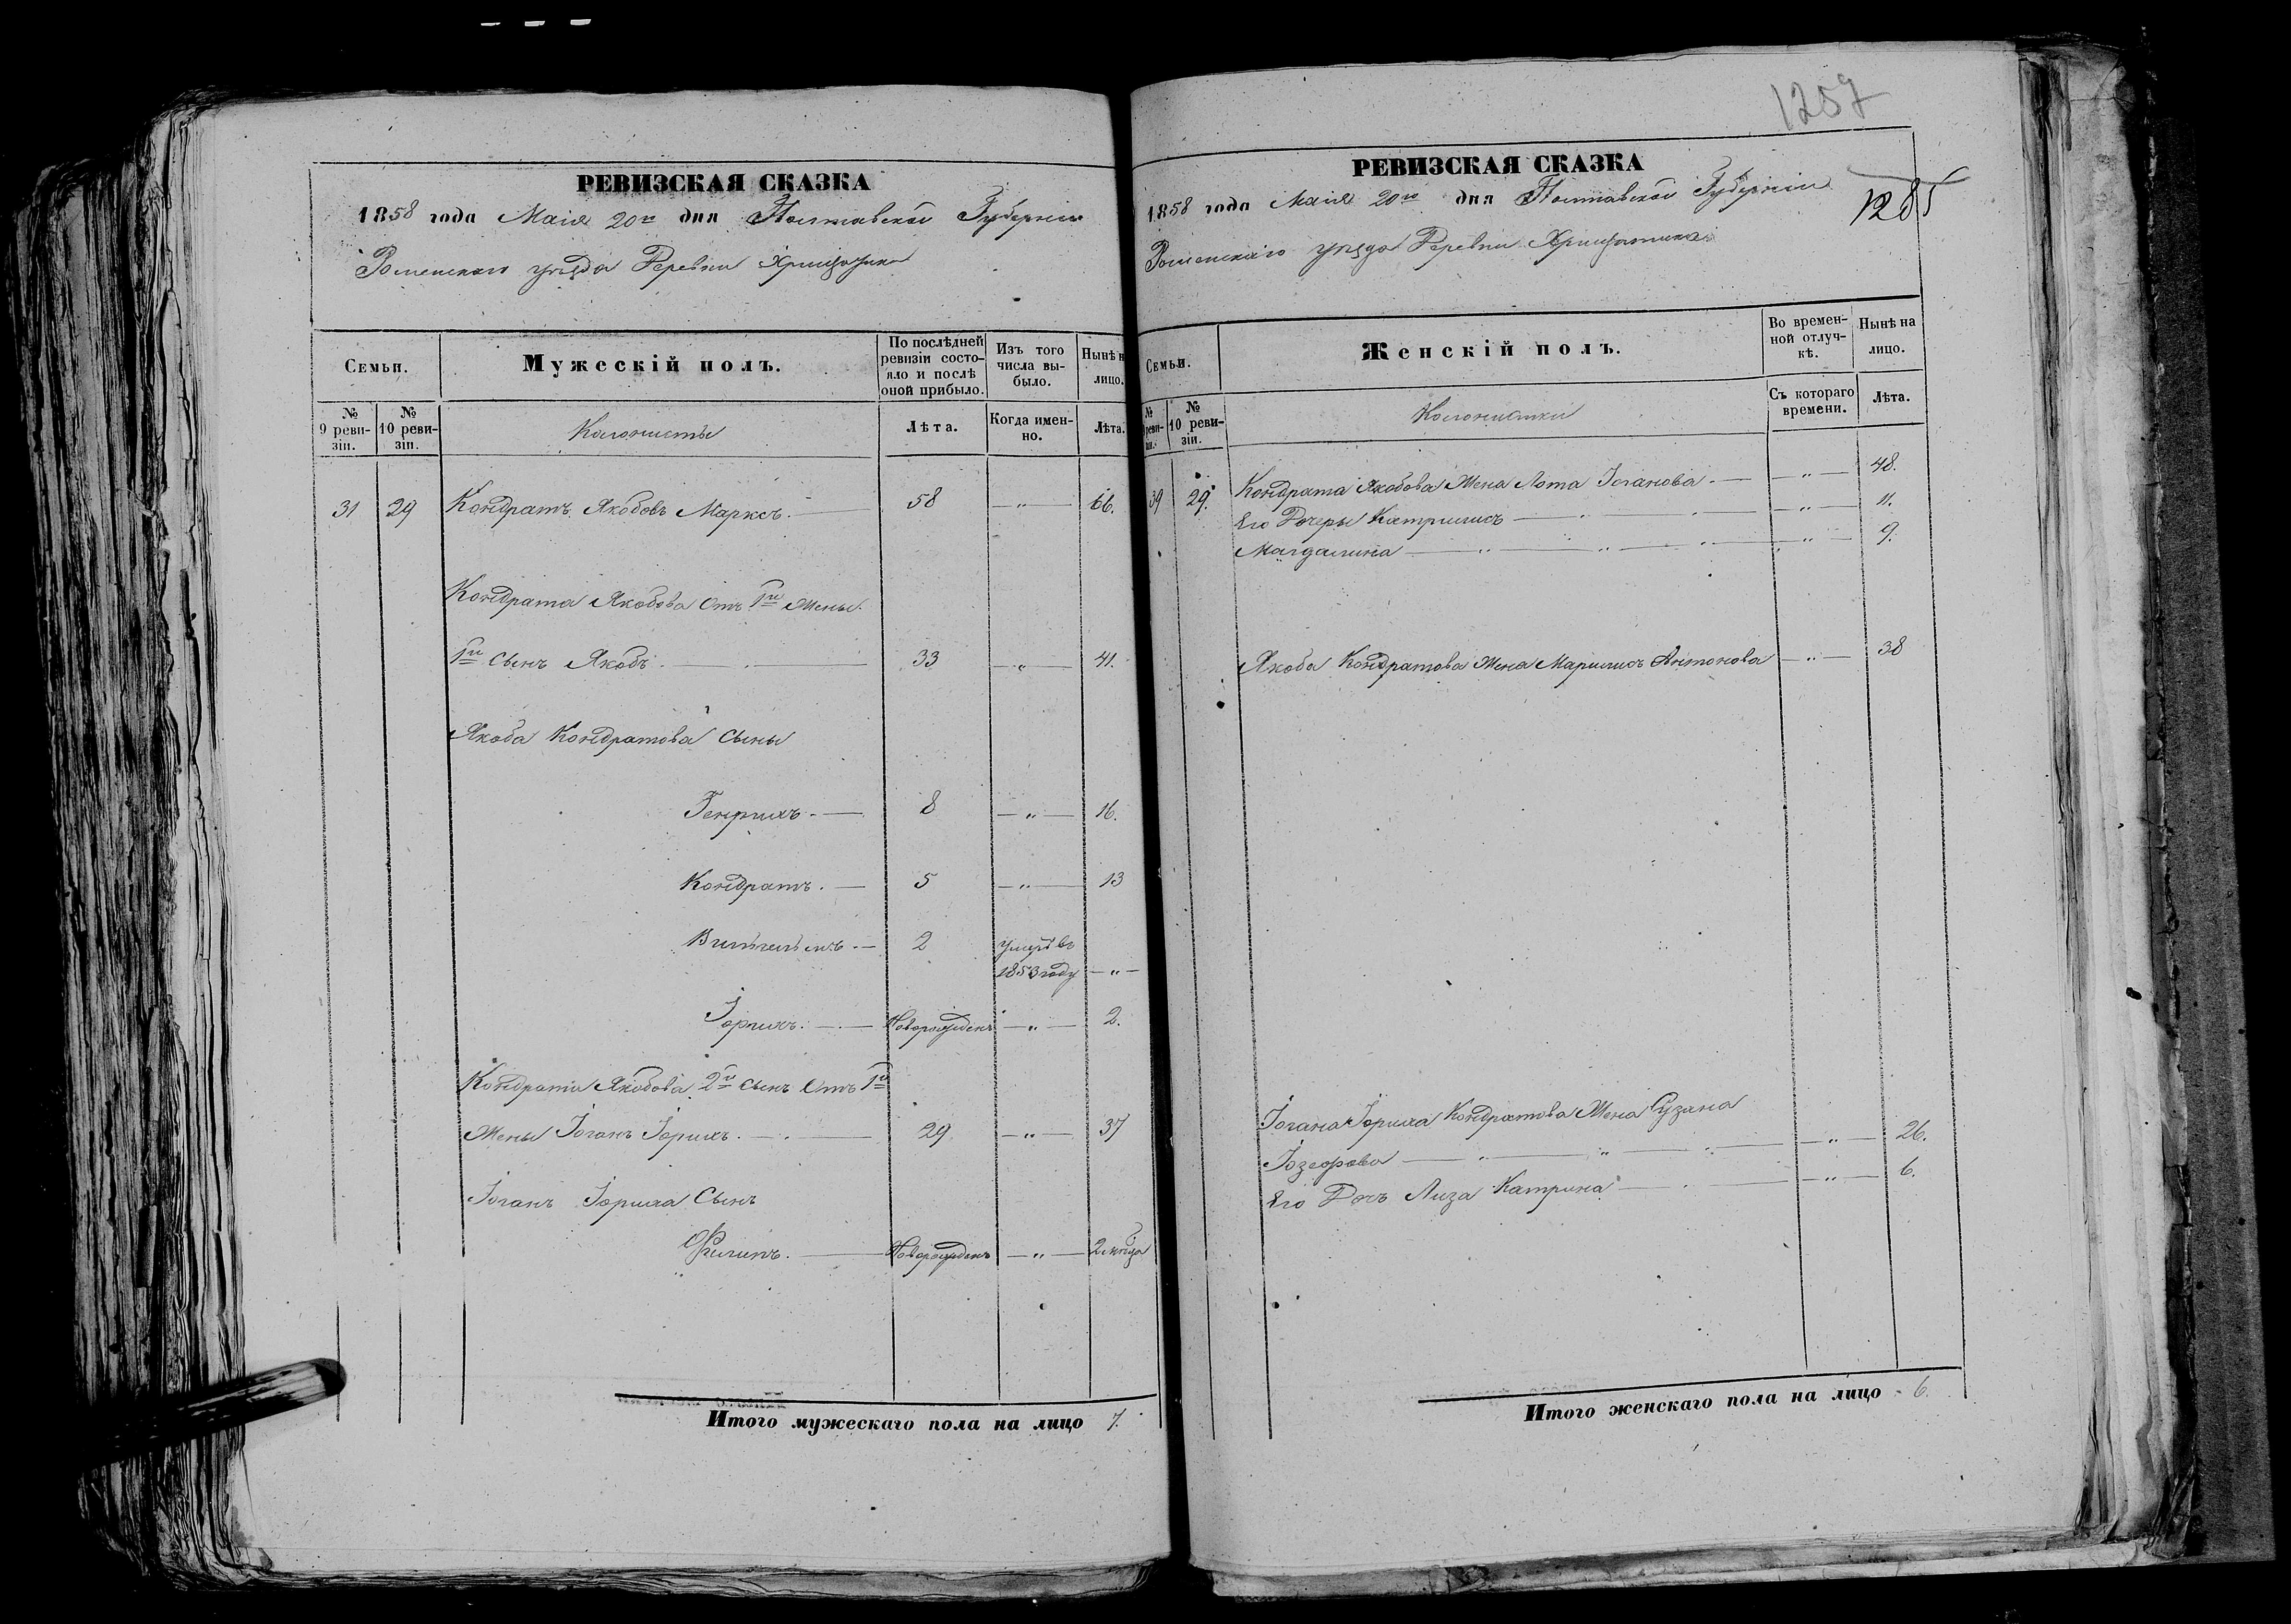 РЕВИЗСКАЯ СКАЗКА
1858 года Маія 20го дня Полтавской Губерніи
Роменскаго уѣзда Деревни
Семьи.
Мужескій полъ.
По послѣдней ревизіи состояло и послѣ оной прибыло.
Изъ того числа выбыло.
Нынѣ н лицо.
№ 9 ревизіи.
№ 10 ревизіи.
Колонисты
Лѣта.
Когда именно.
Лѣта.
31 29 Кондратъ Якобовъ Марксъ. 58 — „ — 66.
Кондрата Якобова Отъ 1й Жены.
1й Сынъ Якобъ. 33 — „ — 41.
Якоба Кондратова Сыны
Генрихъ. — 8 — „ — 16.
Кондратъ. — 5 — „ — 13
Вильгельмъ. — 2 умеръ въ
1853 году — „ —
Іорихъ. — Новорожденъ — „ — 2.
Кондрата Якобова 2й Сынъ Отъ 1й
Жены Іоганъ Іорихъ. — 29 — „ — 37
Іоганъ Іориха Сынъ
Филипъ. — Новорожденъ — „ — 2 мѣсяца
Итого мужескаго пола на лицо 7.
1257
РЕВИЗСКАЯ СКАЗКА
1285
1858 года Маія 20го дня Полтавской Губерніи
Роменскаго уѣзда Деревни
Семьи.
Женскій полъ.
Во временной отлучкѣ.
Нынѣ на лицо.
№ реви- зіи.
№ 10 ревизіи.
Колонистки
Съ котораго времени.
Лѣта.
39 29. Кондрата Якобова Жена Лота Іоганова. — „ — 48.
Его Дочеры Катрилисъ — „ — 11.
Магдалина — „ — 9.
Якоба Кондратова Жена Марилисъ Антонова — „ — 38
Іогана Іориха Кондратова Жена Сузана
Іозефова — „ — 26.
Его Дочь Лиза Катрина — „ — 6.
Итого женскаго пола на лицо 6.